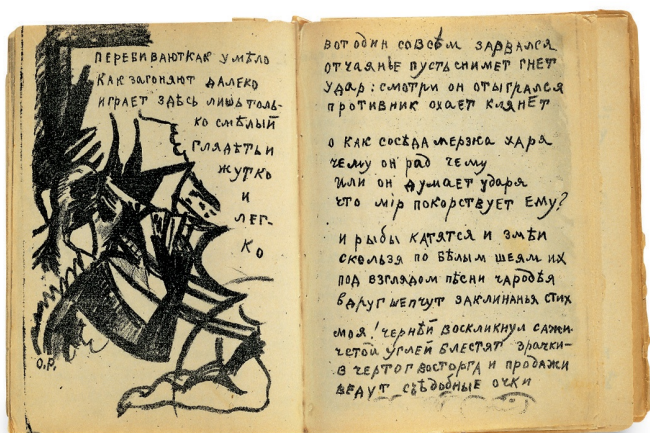 перебивают как умѣло
как загоняют далеко
играет здѣсь лишь толь-
ко смѣлый
глядѣть и
жутко
и
лег-
ко
О.Р.
вот один совсѣм зарвался
отчаянье пусть снимет гнет
удар: смотри он отыгрался
противник охает клянет
о как сосѣда мерзка харя
чему он рад чему
или он думает ударя
что мір покорствует ему?
и рыбы катятся и змѣи
скользя по бѣлым шеям их
под взглядом пѣсни чародѣя
вдруг шепчут заклинанья стих
моя! чернѣй воскликнул сажи
чстой углей блестят зрачки-
в чертог восторга и продажи
ведут съѣдобные очки